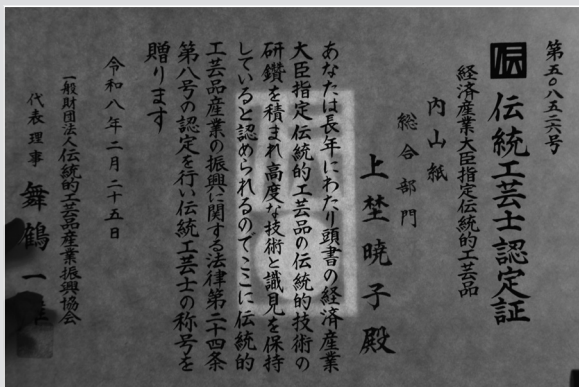 第五〇八五二六号
伝
伝統工芸士認定証
経済産業大臣指定伝統的工芸品
内山紙
総合部門
上埜暁子殿
あなたは長年にわたり頭書の経済産業
大臣指定伝統的工芸品の伝統的技術の
研鑽を積まれ高度な技術と識見を保持
していると認められるのでここに伝統的
工芸品産業の振興に関する法律第二十四条
第八号の認定を行い伝統工芸士の称号を
贈ります
令和八年二月二十五日
一般財団法人伝統的工芸品産業振興協会
代表理事 舞鶴一